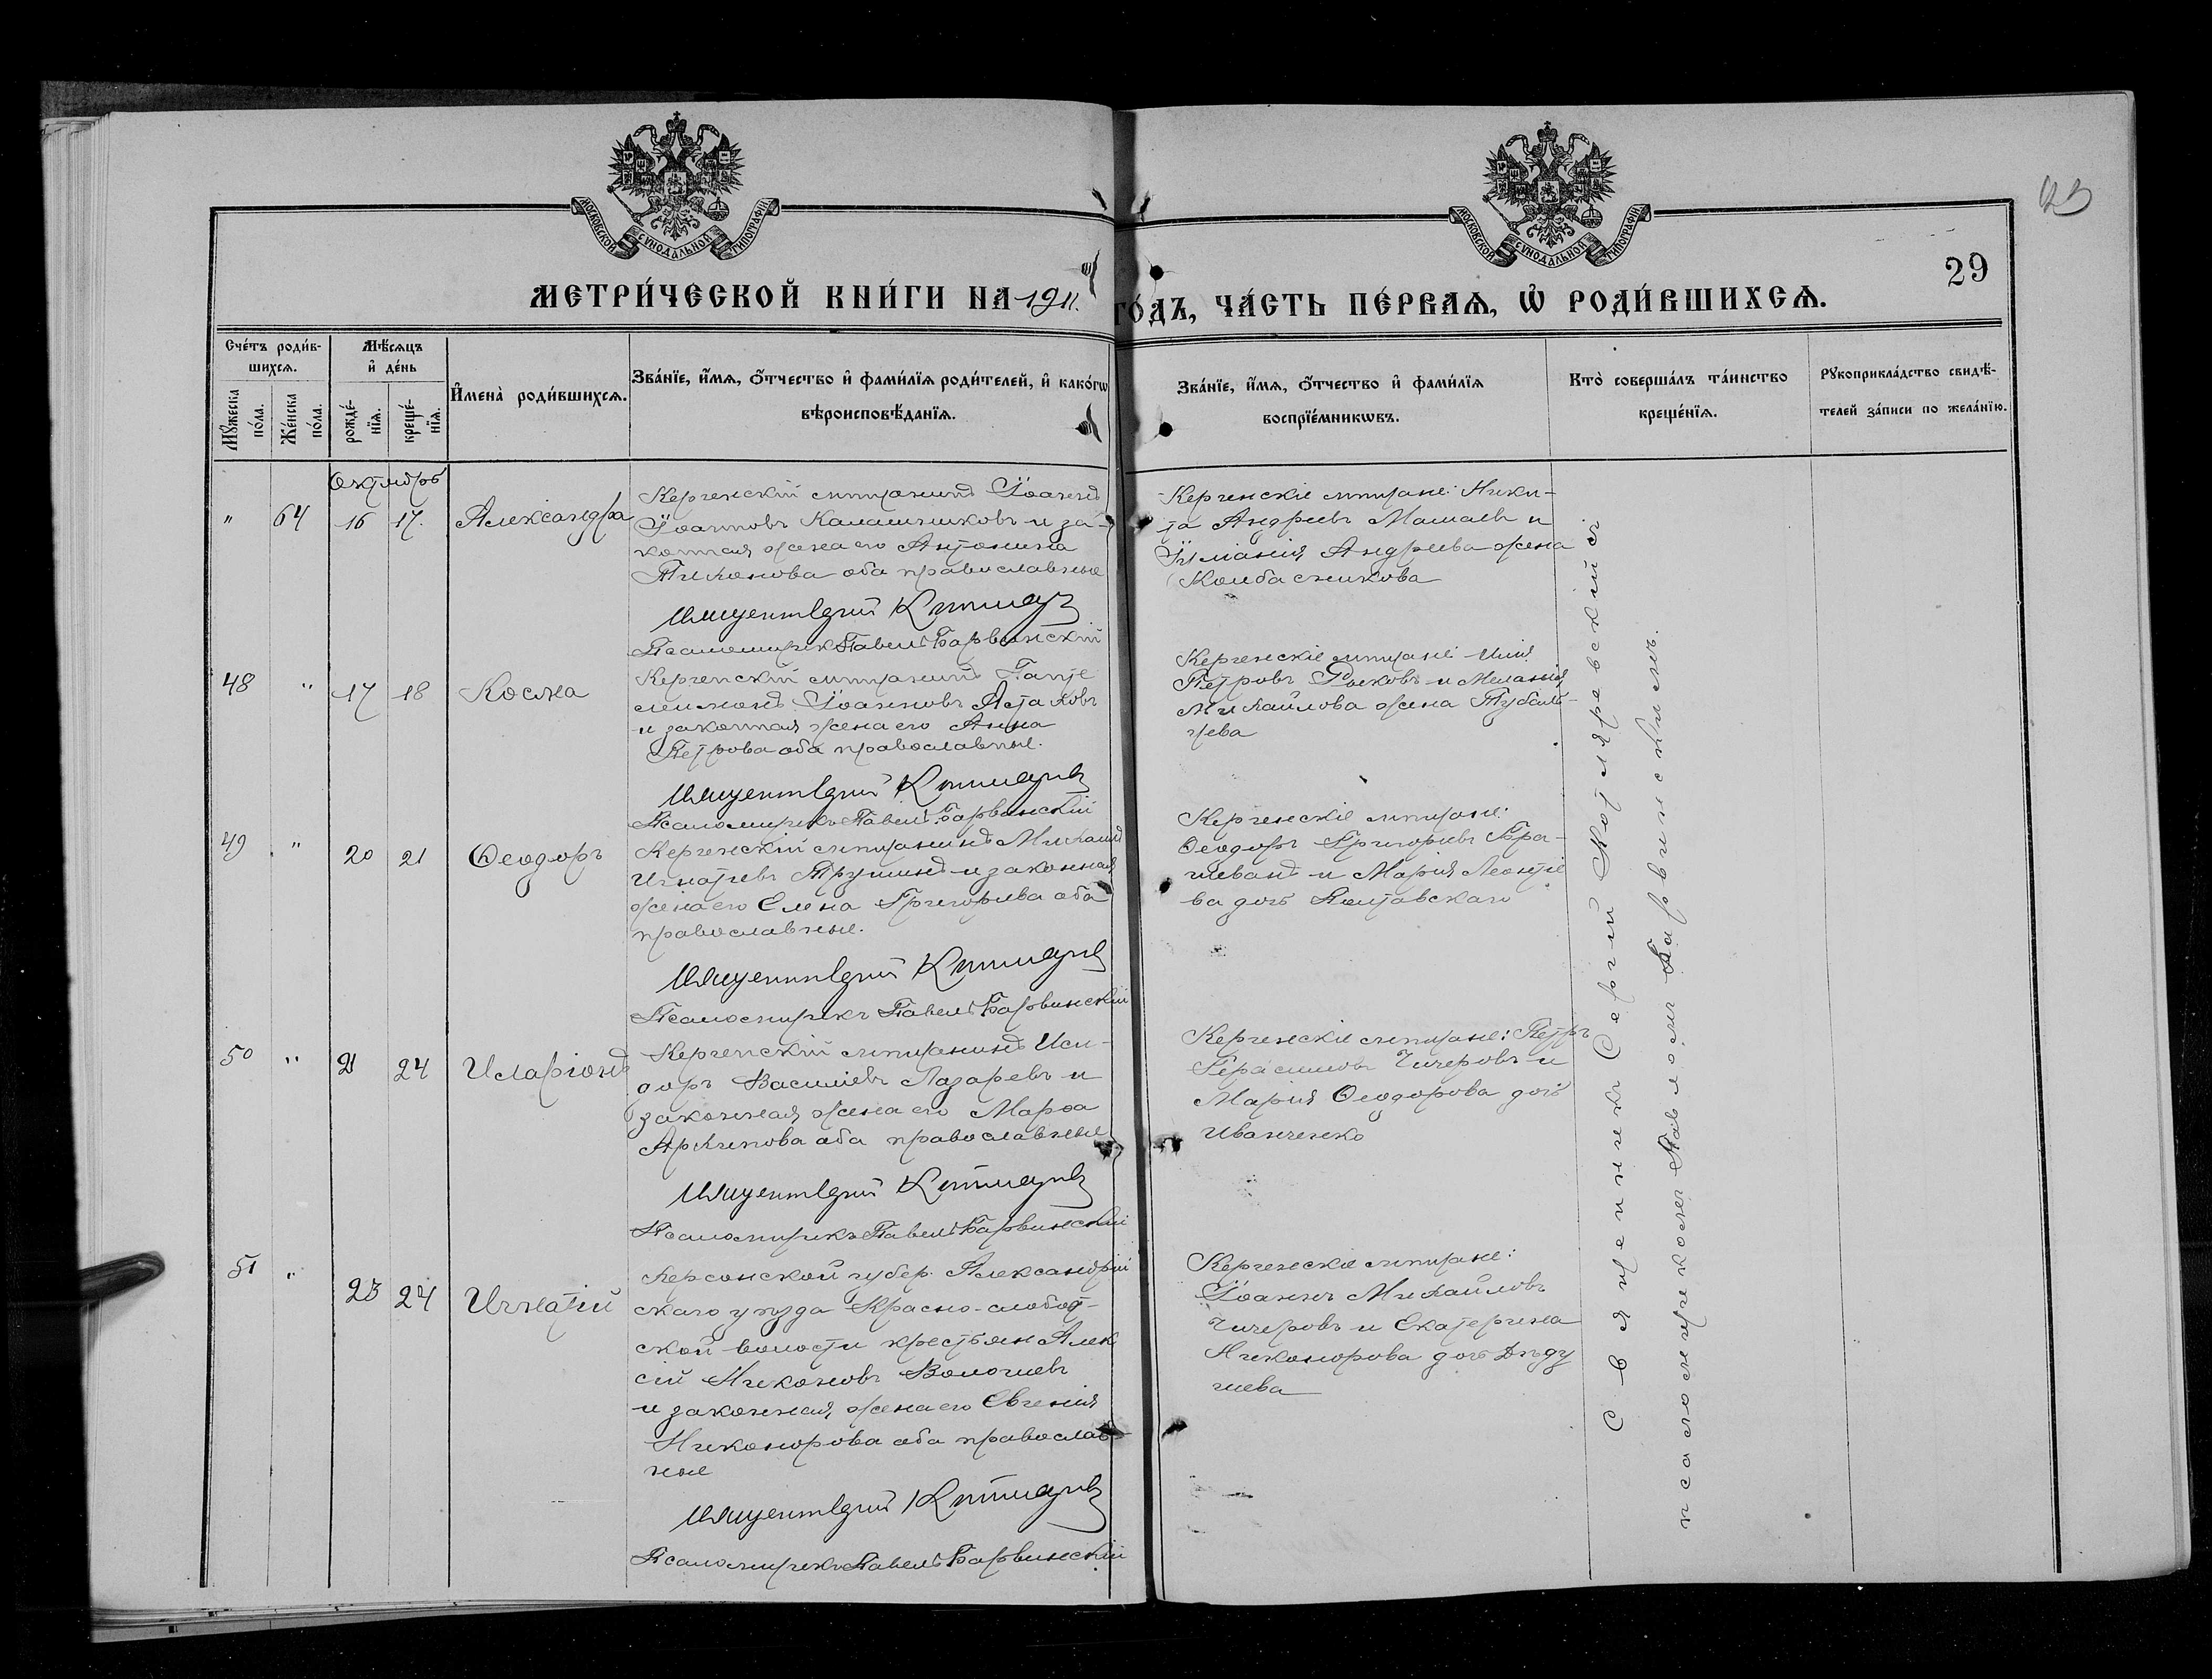 МОСКОВСКОЙ СУНОДАЛЬНОЙ ТИПОГРАФІИ
МОСКОВСКОЙ СУНОДАЛЬНОЙ ТИПОГРАФІИ
29
МЕТРИ́ЧЕСКОЙ КНИ́ГИ НА 1911. ГО́ДЪ, ЧА́СТЬ ПЕ́РВАѦ, Ѡ РОДИ́ВШИХСѦ.
Сче́тъ роди́в-
шихсѧ.
Мꙋ́жеска по́ла.
Же́нска по́ла.
Мѣ́сѧцъ
и҆ де́нь
рожде́-
нїѧ.
креще́-
нїѧ.
И҆мена̀ роди́вшихсѧ.
Зва́нїе, и҆́мѧ, ѻ҆́тчество и҆ фами́лїѧ роди́телей, и҆ како́гѡ
вѣроисповѣ́данїѧ.
Зва́нїе, и҆́мѧ, ѻ҆́тчество и҆ фами́лїѧ
воспрїе́мникѡвъ.
Кто̀ соверша́лъ та́инство
креще́нїѧ.
Рꙋкоприкла́дство свидѣ́-
телей за́писи по жела́нїю.
Октябрь
" 64 16 17. Александра
Керченскій мѣщанинъ Іоаннъ
Іоанновъ Калашниковъ и за-
конная жена его Антонина
Тихонова оба православные
Псаломщикъ Павелъ Барвинскій
Керченскіе мѣщане: Ники-
та Андреевъ Мамаевъ и
Андреева жена
Колбасникова
48 " 17 18 Косма
Керченскій мѣщанинъ Панте
леимонъ Іоанновъ Астаховъ
и законная жена его Анна
Петрова оба православные.
Псаломщикъ Павелъ Барвинскій
Керченскіе мѣщане: Илія
Петровъ и Меланія
Михайлова жена Тубаль-
цева
49 " 20 21 Ѳеодоръ
Керченскій мѣщанинъ Михаилъ
Игнатіевъ Трушинъ и законная
жена его Елена Григорьева оба
православные.
Псаломщикъ Павелъ Барвинскій
Керченскіе мѣщане:
Ѳеодоръ Григорьевъ Бра-
илеванъ и Марія Леонтіе
ва дочь Полтавскаго
50 " 21 24 Иларіонъ
Керченскій мѣщанинъ Иси-
доръ Василіевъ Лазаревъ и
законная жена его Марѳа
Архипова оба православные
Псаломщикъ Павелъ Барвинскій
Керченскіе мѣщане: Петръ
Герасимовъ Чичеровъ и
Марія Ѳеодорова дочь
Иванченко
51 " 23 24 Игнатій
Херсонской губер. Александрій
скаго уѣзда Красно-слобод-
ской волости крестьян Алек
сій Никоновъ
и законная жена его Евгенія
Никонорова оба православ-
ные
Псаломщикъ Павелъ Барвинскій
Керченскіе мѣщане:
Іоаннъ Михайловъ
Чичеровъ и Екатерина
Никонорова дочь Дѣду
шева
Священникъ Сергій Котляревскій съ
псаломщикомъ Павломъ Барвинскимъ.